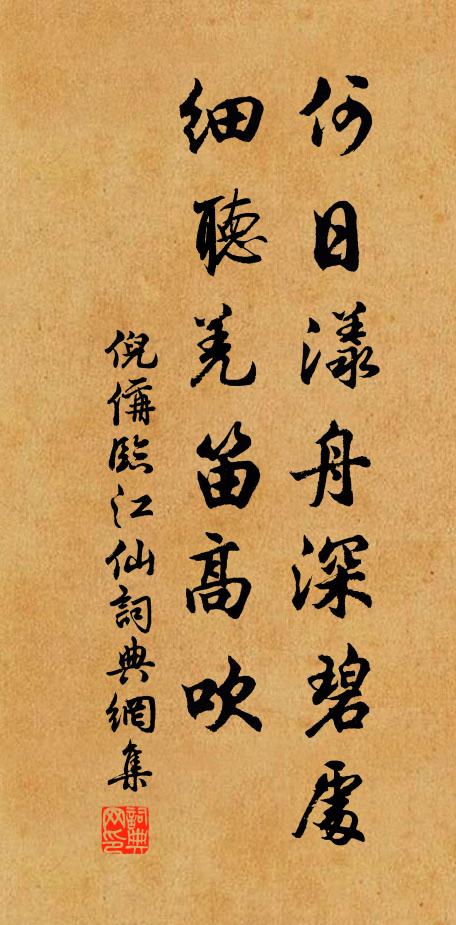 何日漾舟深碧處
細聽羌笛高吹
倪偁臨江仙詞典網集
詞典网印